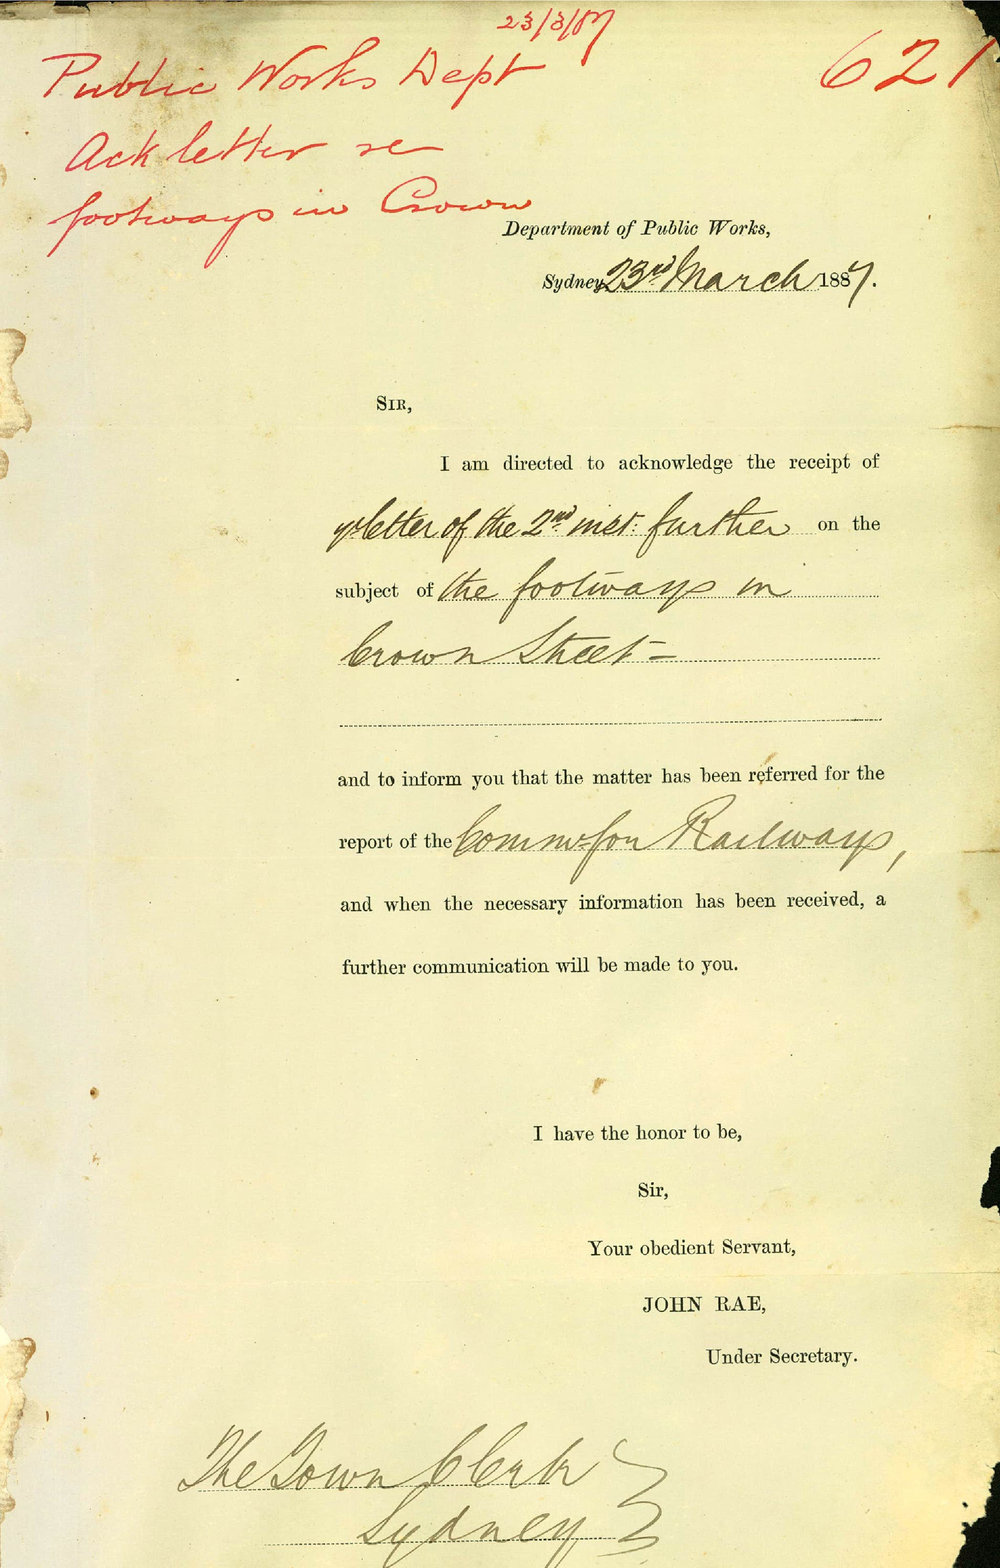 23/3/87
621
Public Works Dept
Ack letter re
footways in Crown
Department of Public Works,
Sydney 23rd March 1887.
SIR,
I am directed to acknowledge the receipt of
yr letter of the 2nd inst: further on the
subject of the footways in
Crown Street =
and to inform you that the matter has been referred for the
report of the Commr for Railways,
and when the necessary information has been received, a
further communication will be made to you.
I have the honor to be,
Sir,
Your obedient Servant,
JOHN RAE,
Under Secretary.
The Town Clerk
Sydney